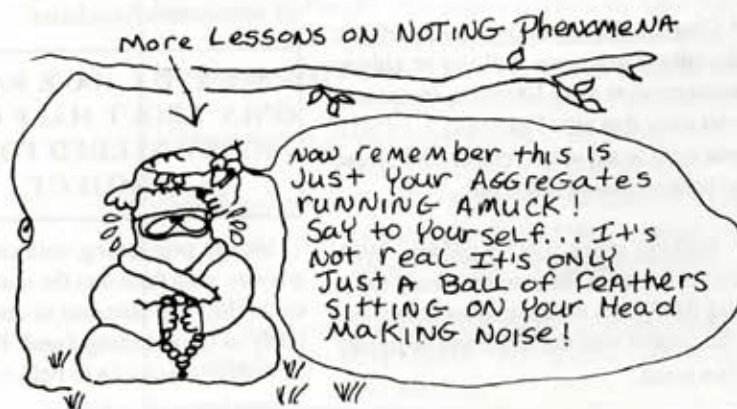 More Lessons on NOTING Phenomena
Now remember this is
Just Your AGGreGAtes
rUNNING AMUCK!
SAY to YourSelf... It's
Not real It's ONLY
Just A BALL of FeAthers
SITTING ON Your Head
MAKING NOISE!